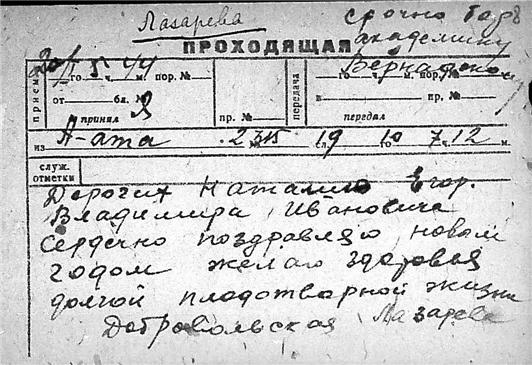 Лазарева
срочно Бор
академику
Вернадском
ПРОХОДЯЩАЯ
го ч. м. пор. №
го ч. м. пор. №
прием
от бл. №
принял Я
пр. №
передача
и пр. №
передал
из А-ата 2 315 19 го 10 ч. 7 12 м.
служ.
отметки
Дорогих Наталию Егор.
Владимира Ивановича
Сердечно поздравляю новым
годом желаю здоровья
долгой плодотворной жизни
Добровольская Лазарева